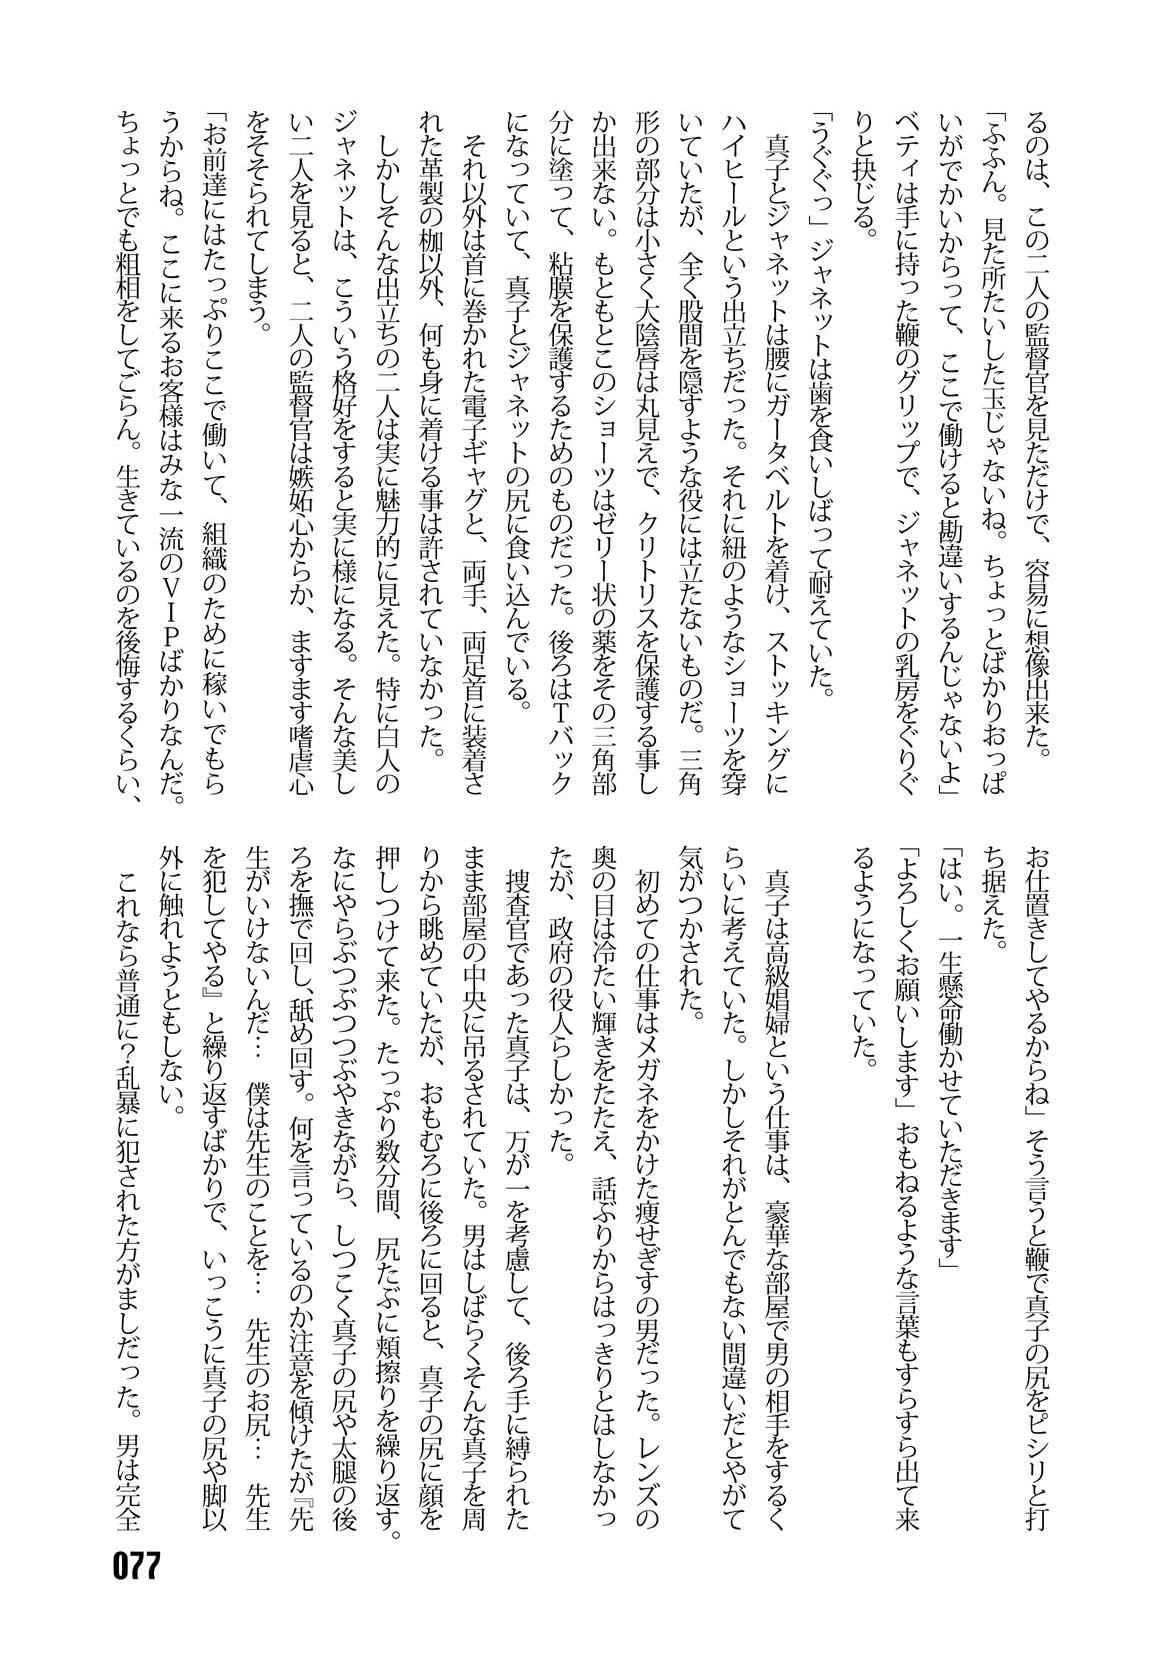 るのは、この二人の監督官を見ただけで、容易に想像出来た。
「ふふん。見た所たいした玉じゃないね。ちょっとばかりおっぱ
いがでかいからって、ここで働けると勘違いするんじゃないよ」
ベティは手に持った鞭のグリップで、ジャネットの乳房をぐりぐ
りと抉じる。
「うぐぐっ」ジャネットは歯を食いしばって耐えていた。
真子とジャネットは腰にガータベルトを着け、ストッキングに
ハイヒールという出立ちだった。それに紐のようなショーツを穿
いていたが、全く股間を隠すような役には立たないものだ。三角
形の部分は小さく大陰唇は丸見えで、クリトリスを保護する事し
か出来ない。もともとこのショーツはゼリー状の薬をその三角部
分に塗って、粘膜を保護するためのものだった。後ろはTバック
になっていて、真子とジャネットの尻に食い込んでいる。
それ以外は首に巻かれた電子ギャグと、両手、両足首に装着さ
れた革製の枷以外、何も身に着ける事は許されていなかった。
しかしそんな出立ちの二人は実に魅力的に見えた。特に白人の
ジャネットは、こういう格好をすると実に様になる。そんな美し
い二人を見ると、二人の監督官は嫉妬心からか、ますます嗜虐心
をそそられてしまう。
「お前達にはたっぷりここで働いて、組織のために稼いでもら
うからね。ここに来るお客様はみな一流のVIPばかりなんだ。
ちょっとでも粗相をしてごらん。生きているのを後悔するくらい、
お仕置きしてやるからね」そう言うと鞭で真子の尻をピシリと打
ち据えた。
「はい。一生懸命働かせていただきます」
「よろしくお願いします」おもねるような言葉もすらすら出て来
るようになっていた。
真子は高級娼婦という仕事は、豪華な部屋で男の相手をするく
らいに考えていた。しかしそれがとんでもない間違いだとやがて
気がつかされた。
初めての仕事はメガネをかけた痩せぎすの男だった。レンズの
奥の目は冷たい輝きをたたえ、話ぶりからはっきりとはしなかっ
たが、政府の役人らしかった。
捜査官であった真子は、万が一を考慮して、後ろ手に縛られた
まま部屋の中央に吊るされていた。男はしばらくそんな真子を周
りから眺めていたが、おもむろに後ろに回ると、真子の尻に顔を
押しつけて来た。たっぷり数分間、尻たぶに頬擦りを繰り返す。
なにやらぶつぶつつぶやきながら、しつこく真子の尻や太腿の後
ろを撫で回し、舐め回す。何を言っているのか注意を傾けたが『先
生がいけないんだ… 僕は先生のことを… 先生のお尻… 先生
を犯してやる』と繰り返すばかりで、いっこうに真子の尻や脚以
外に触れようともしない。
これなら普通に？乱暴に犯された方がましだった。男は完全
077